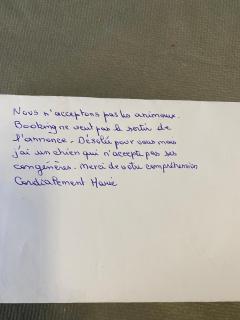 Nous n'acceptons pas les animaux.
Booking ne veut pas le sortir de
l'annonce. Désolée pour vous mais
j'ai un chien qui n'accepte pas ses
congénères. Merci de votre compréhension
Cordialement Marie